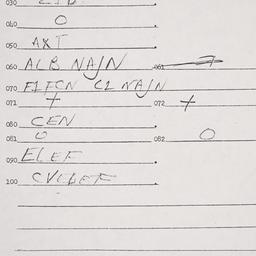 030
040 O
050 AXT
060 ALB NAJN 061
070 FIFCN CL NAJN
071 + 072 +
080 CEN
081 O 082 O
090 ELEF
100 CVLDEF